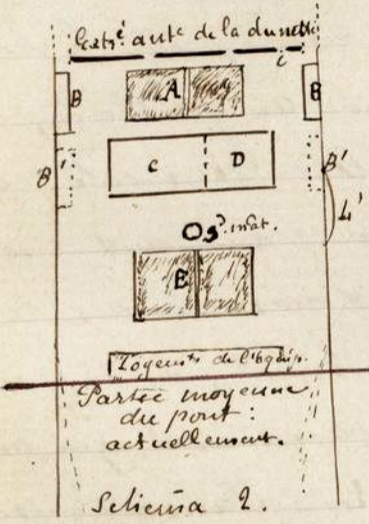 Extré antre de la dunette
i
B A B
B' C D B'
L'
gd mât.
E
Logemts de l'équip.
Partie moyenne
du pont :
actuellement.
Schéma 2.